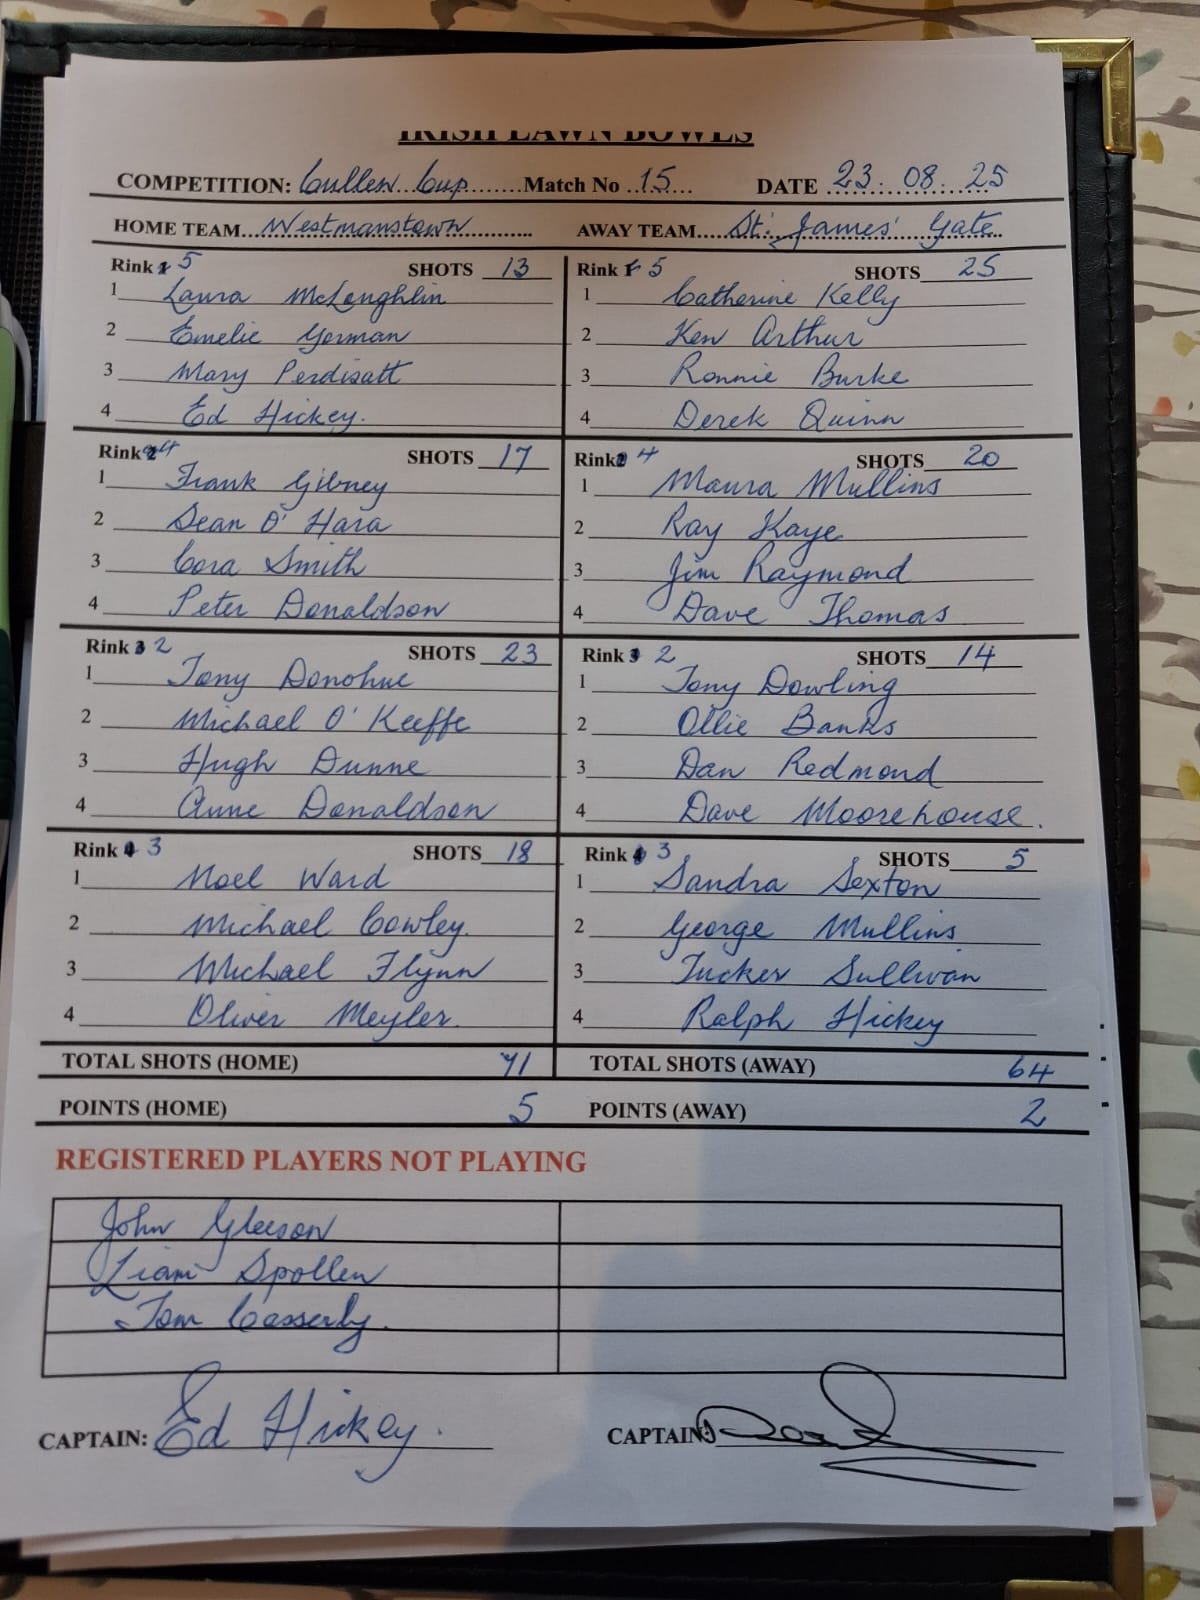 IRISH LAWN BOWLS
COMPETITION: Cullen Cup Match No 15 DATE 23.08.25
HOME TEAM Westmanstown AWAY TEAM St. James' Gate
Rink 5 SHOTS 13 Rink 5 SHOTS 25
1 Laura McLoughlin 1 Catherine Kelly
2 Emelie Gorman 2 Ken Arthur
3 Mary Perdisatt 3 Ronnie Burke
4 Ed Hickey. 4 Derek Quinn
Rink 4 SHOTS 17 Rink 4 SHOTS 20
1 Frank Gibney 1 Maura Mullins
2 Sean O' Hara 2 Ray Kaye
3 Cora Smith 3 Jim Raymond
4 Peter Donaldson 4 Dave Thomas
Rink 2 SHOTS 23 Rink 2 SHOTS 14
1 Tony Donohue 1 Tony Dowling
2 Michael O' Keeffe 2 Ollie Banks
3 Hugh Dunne 3 Dan Redmond
4 Anne Donaldson 4 Dave Moorehouse.
Rink 3 SHOTS 18 Rink 3 SHOTS 5
1 Noel Ward 1 Sandra Sexton
2 Michael Cowley. 2 George Mullins
3 Michael Flynn 3 Tucker Sullivan
4 Oliver Meyler. 4 Ralph Hickey
TOTAL SHOTS (HOME) 71 TOTAL SHOTS (AWAY) 64
POINTS (HOME) 5 POINTS (AWAY) 2
REGISTERED PLAYERS NOT PLAYING
John Gleeson
Liam Spollen
Tom Casserly.
CAPTAIN: Ed Hickey. CAPTAIN: